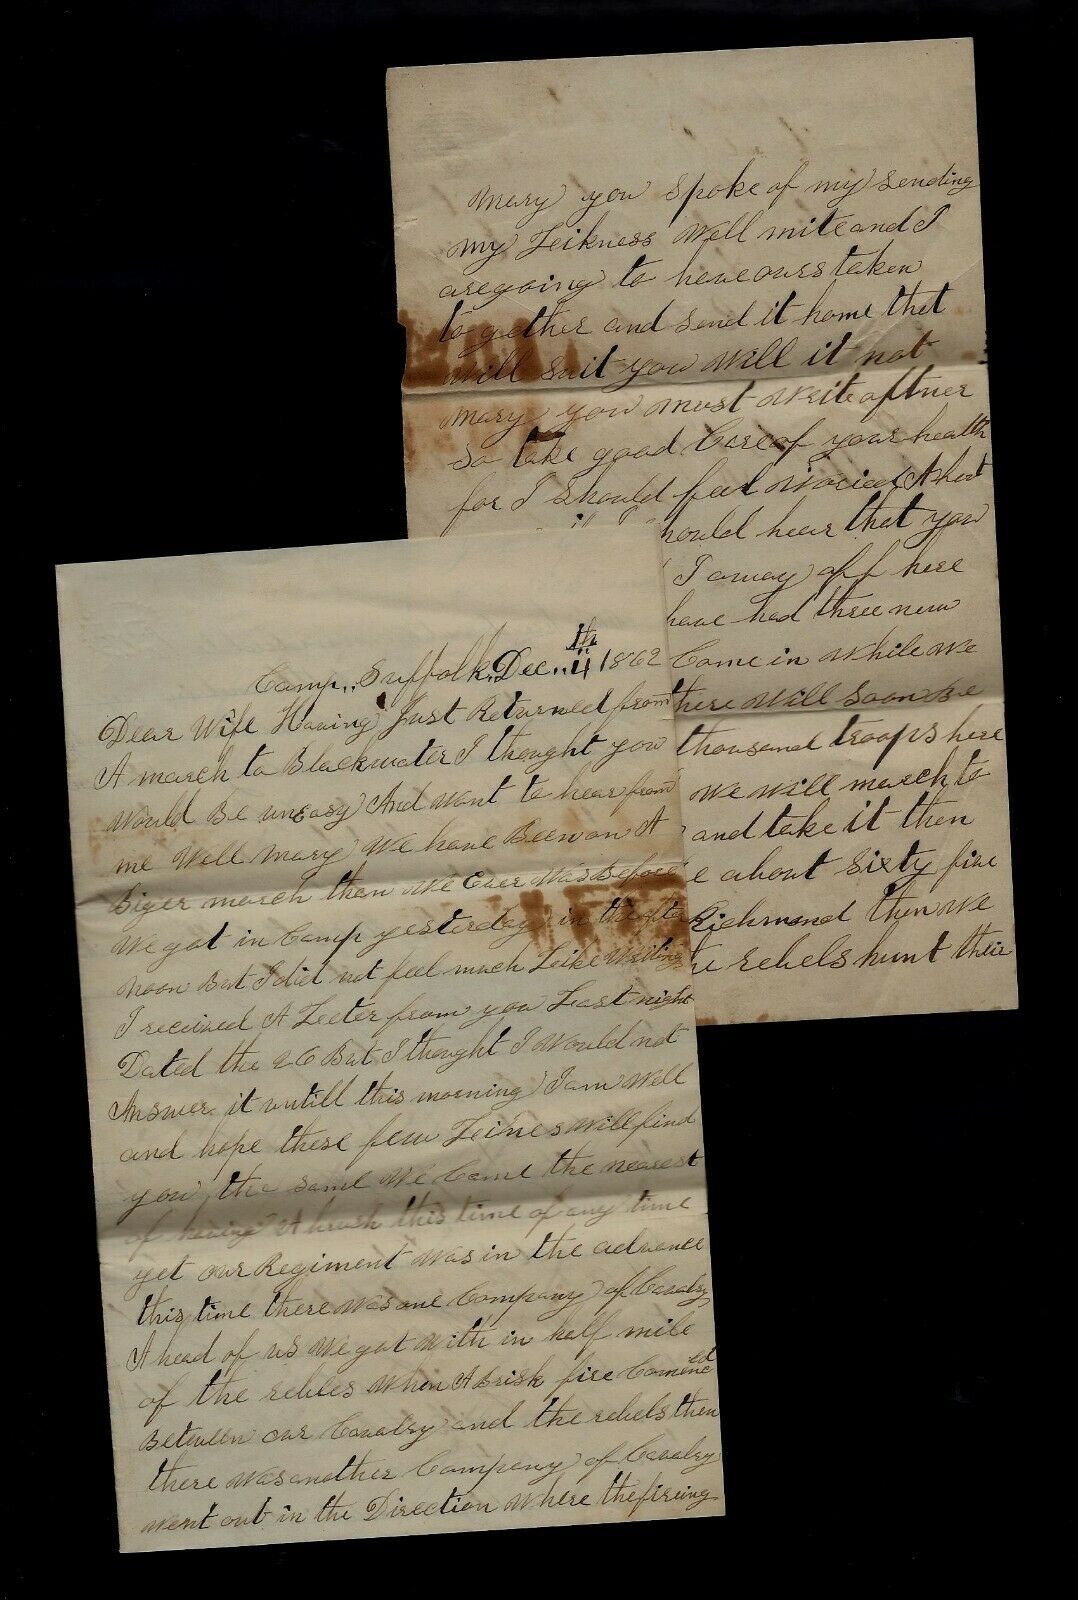 Camp,, Suffolk,, Dec,, 4th 1862
Dear Wife Having Just Returned from
A march to Blackwater I thought you
Would Be unEasy And want to hear from
me Well Mary We have Been on A
Biger march then We Ever Was Before
We got in Camp yesterday in the after
noon But I did not feel much Like Writing
I received A Leeter from you Last night
Dated the 26 But I thought I Would not
Answer it untill this morning I am Well
and hope these few Leines Will find
you the same We Came the nearest
of having A brush this time of any time
yet our Regiment Was in the advance
this time there Was one Company of Cavalry
A head of us We got With in half mile
of the rebles When A Brisk fire Comenced
Between our Cavalry and the rebels then
there Was another Company of Cavalry
Went out in the Direction Where the fireing
Mary you spoke of my sending
my Leikness Well mite and I
are going to have ours taken
to gether and send it home that
Will suit you Will it not
Mary you must Write oftner
so take good Care of your health
for I should feel Woried A bout
it I should hear that you
I away off here
have had three new
Come in While We
there Will soon Be
thousand troops here
We will march to
and take it then
about sixty five
Richmond then We
the rebels hunt their